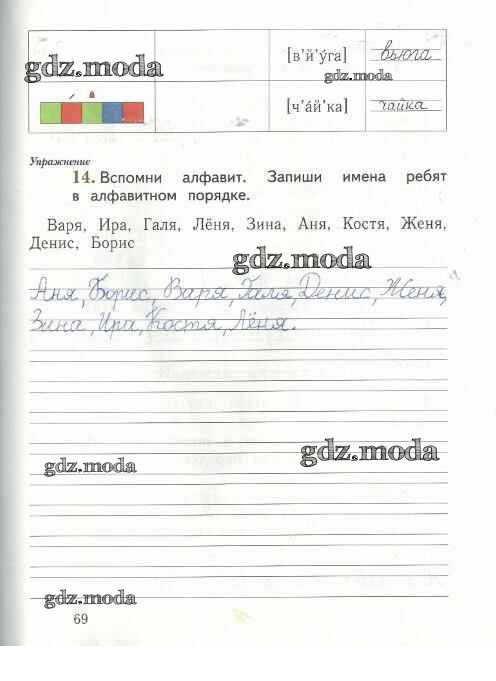 [в'й'у́га] вьюга
gdz.moda
gdz.moda
[ч'а́й'ка] чайка
Упражнение
14. Вспомни алфавит. Запиши имена ребят
в алфавитном порядке.
Варя, Ира, Галя, Лёня, Зина, Аня, Костя, Женя,
Денис, Борис
gdz.moda
Аня, Борис, Варя, Галя, Денис, Женя,
Зина, Ира, Костя, Лёня.
gdz.moda
gdz.moda
gdz.moda
69